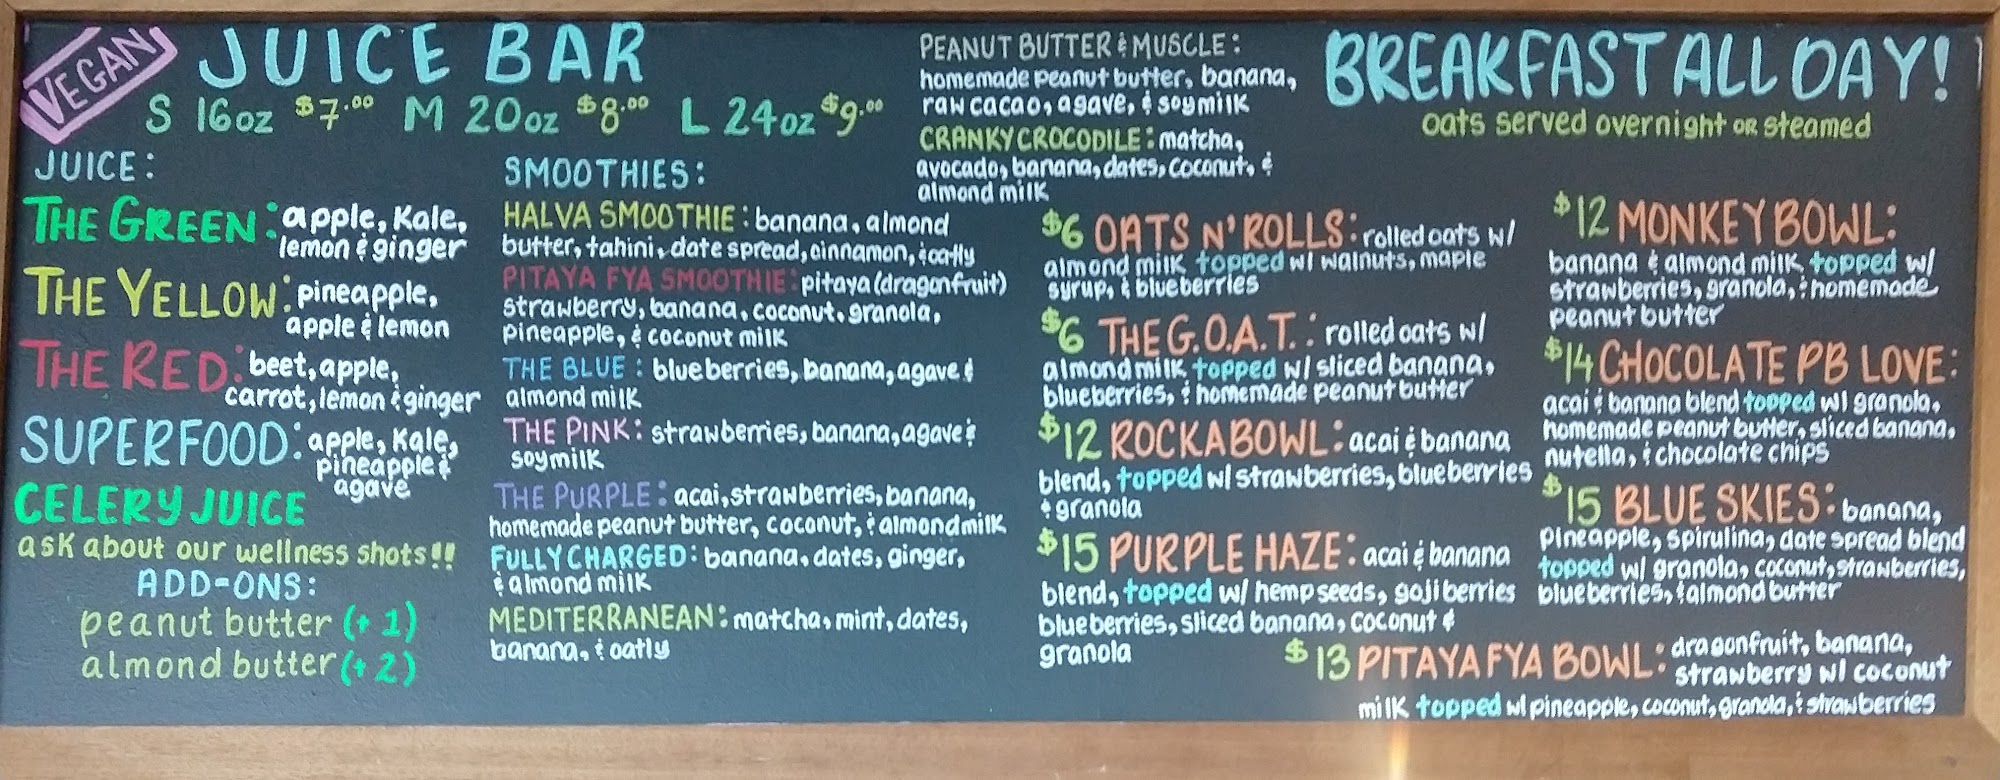 VEGAN
JUICE BAR
S 16oz $7.00 M 20oz $8.00 L 24oz $9.00
JUICE:
THE GREEN: apple, kale,
lemon & ginger
THE YELLOW: pineapple,
apple & lemon
THE RED: beet, apple,
carrot, lemon & ginger
SUPERFOOD: apple, kale,
pineapple &
agave
CELERY JUICE
ask about our wellness shots!!
ADD-ONS:
peanut butter (+1)
almond butter (+2)
SMOOTHIES:
HALVA SMOOTHIE: banana, almond
butter, tahini, date spread, cinnamon, & oatly
PITAYA FYA SMOOTHIE: pitaya (dragonfruit)
strawberry, banana, coconut, granola,
pineapple, & coconut milk
THE BLUE: blueberries, banana, agave &
almond milk
THE PINK: strawberries, banana, agave &
soymilk
THE PURPLE: acai, strawberries, banana,
homemade peanut butter, coconut, & almond milk
FULLY CHARGED: banana, dates, ginger,
& almond milk
MEDITERRANEAN: matcha, mint, dates,
banana, & oatly
PEANUT BUTTER & MUSCLE:
homemade peanut butter, banana,
raw cacao, agave, & soymilk
CRANKY CROCODILE: matcha,
avocado, banana, dates, coconut, &
almond milk
BREAKFAST ALL DAY!
oats served overnight or steamed
$6 OATS N' ROLLS: rolled oats w/
almond milk topped w/ walnuts, maple
syrup, & blueberries
$6 THE G.O.A.T.: rolled oats w/
almond milk topped w/ sliced banana,
blueberries, & homemade peanut butter
$12 ROCKABOWL: acai & banana
blend, topped w/ strawberries, blueberries
& granola
$15 PURPLE HAZE: acai & banana
blend, topped w/ hemp seeds, goji berries
blueberries, sliced banana, coconut &
granola
$12 MONKEY BOWL:
banana & almond milk topped w/
strawberries, granola, & homemade
peanut butter
$14 CHOCOLATE PB LOVE:
acai & banana blend topped w/ granola,
homemade peanut butter, sliced banana,
nutella, & chocolate chips
$15 BLUE SKIES: banana,
pineapple, spirulina, date spread blend
topped w/ granola, coconut, strawberries,
blueberries, & almond butter
$13 PITAYA FYA BOWL: dragonfruit, banana,
strawberry w/ coconut
milk topped w/ pineapple, coconut, granola, & strawberries